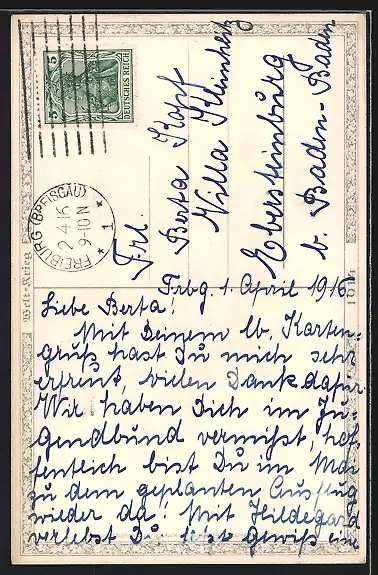 5
5
DEUTSCHES REICH
FREIBURG (BREISGAU)
2.4.16
9-10 N
* 1 *
Frl.
Berta Kopf
Villa Kleinhertz
Ebersteinburg
b. Baden-Baden
Welt-Krieg
1914
Frbg. 1. April 1916.
Liebe Berta!
Mit Deinem lb. Karten-
gruß hast Du mich sehr
erfreut, vielen Dank dafür.
Wir haben Dich im Ju-
gendbund vermißt, hof-
fentlich bist Du im Mai
zu dem geplanten Ausflug
wieder da! Mit Hildegard
verlebst Du jetzt gewiß ein